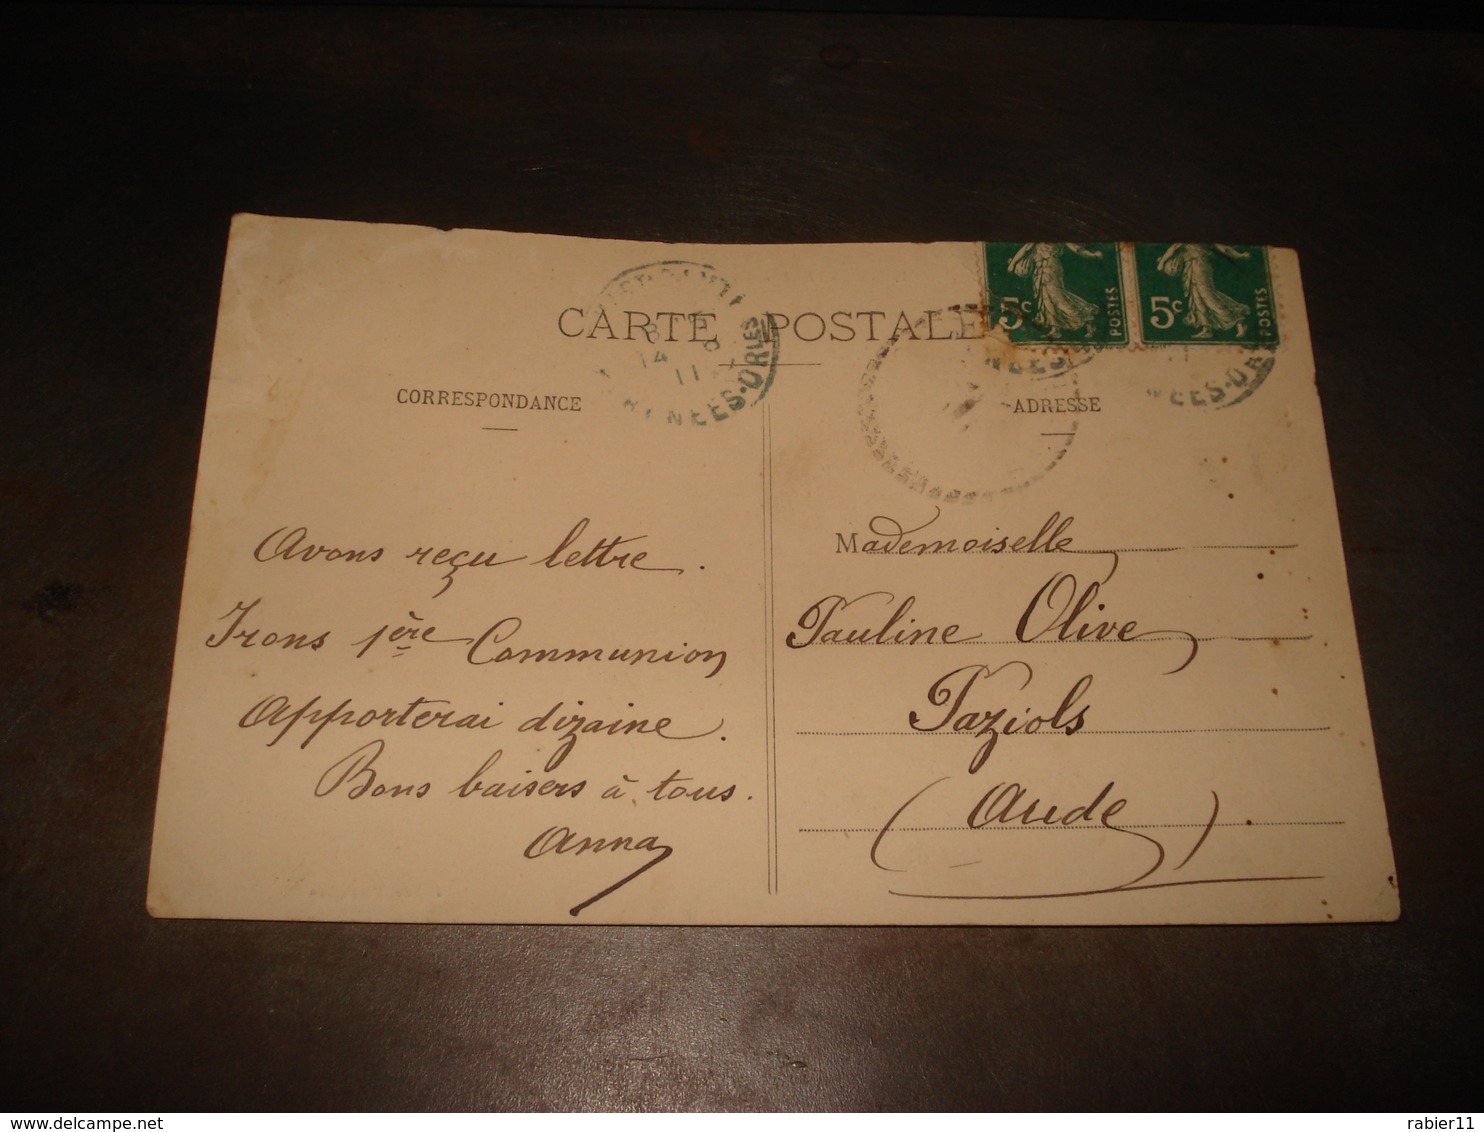 CARTE POSTALE
CORRESPONDANCE
Avons reçu lettre.
Irons 1ère Communion
Apporterai dizaine.
Bons baisers à tous.
Anna
5c POSTES
5c POSTES
14
11
NEES-ORLES
NEES-OR
ADRESSE
Mademoiselle
Pauline Olive
Paziols
(Aude).
www.delcampe.net
rabier11